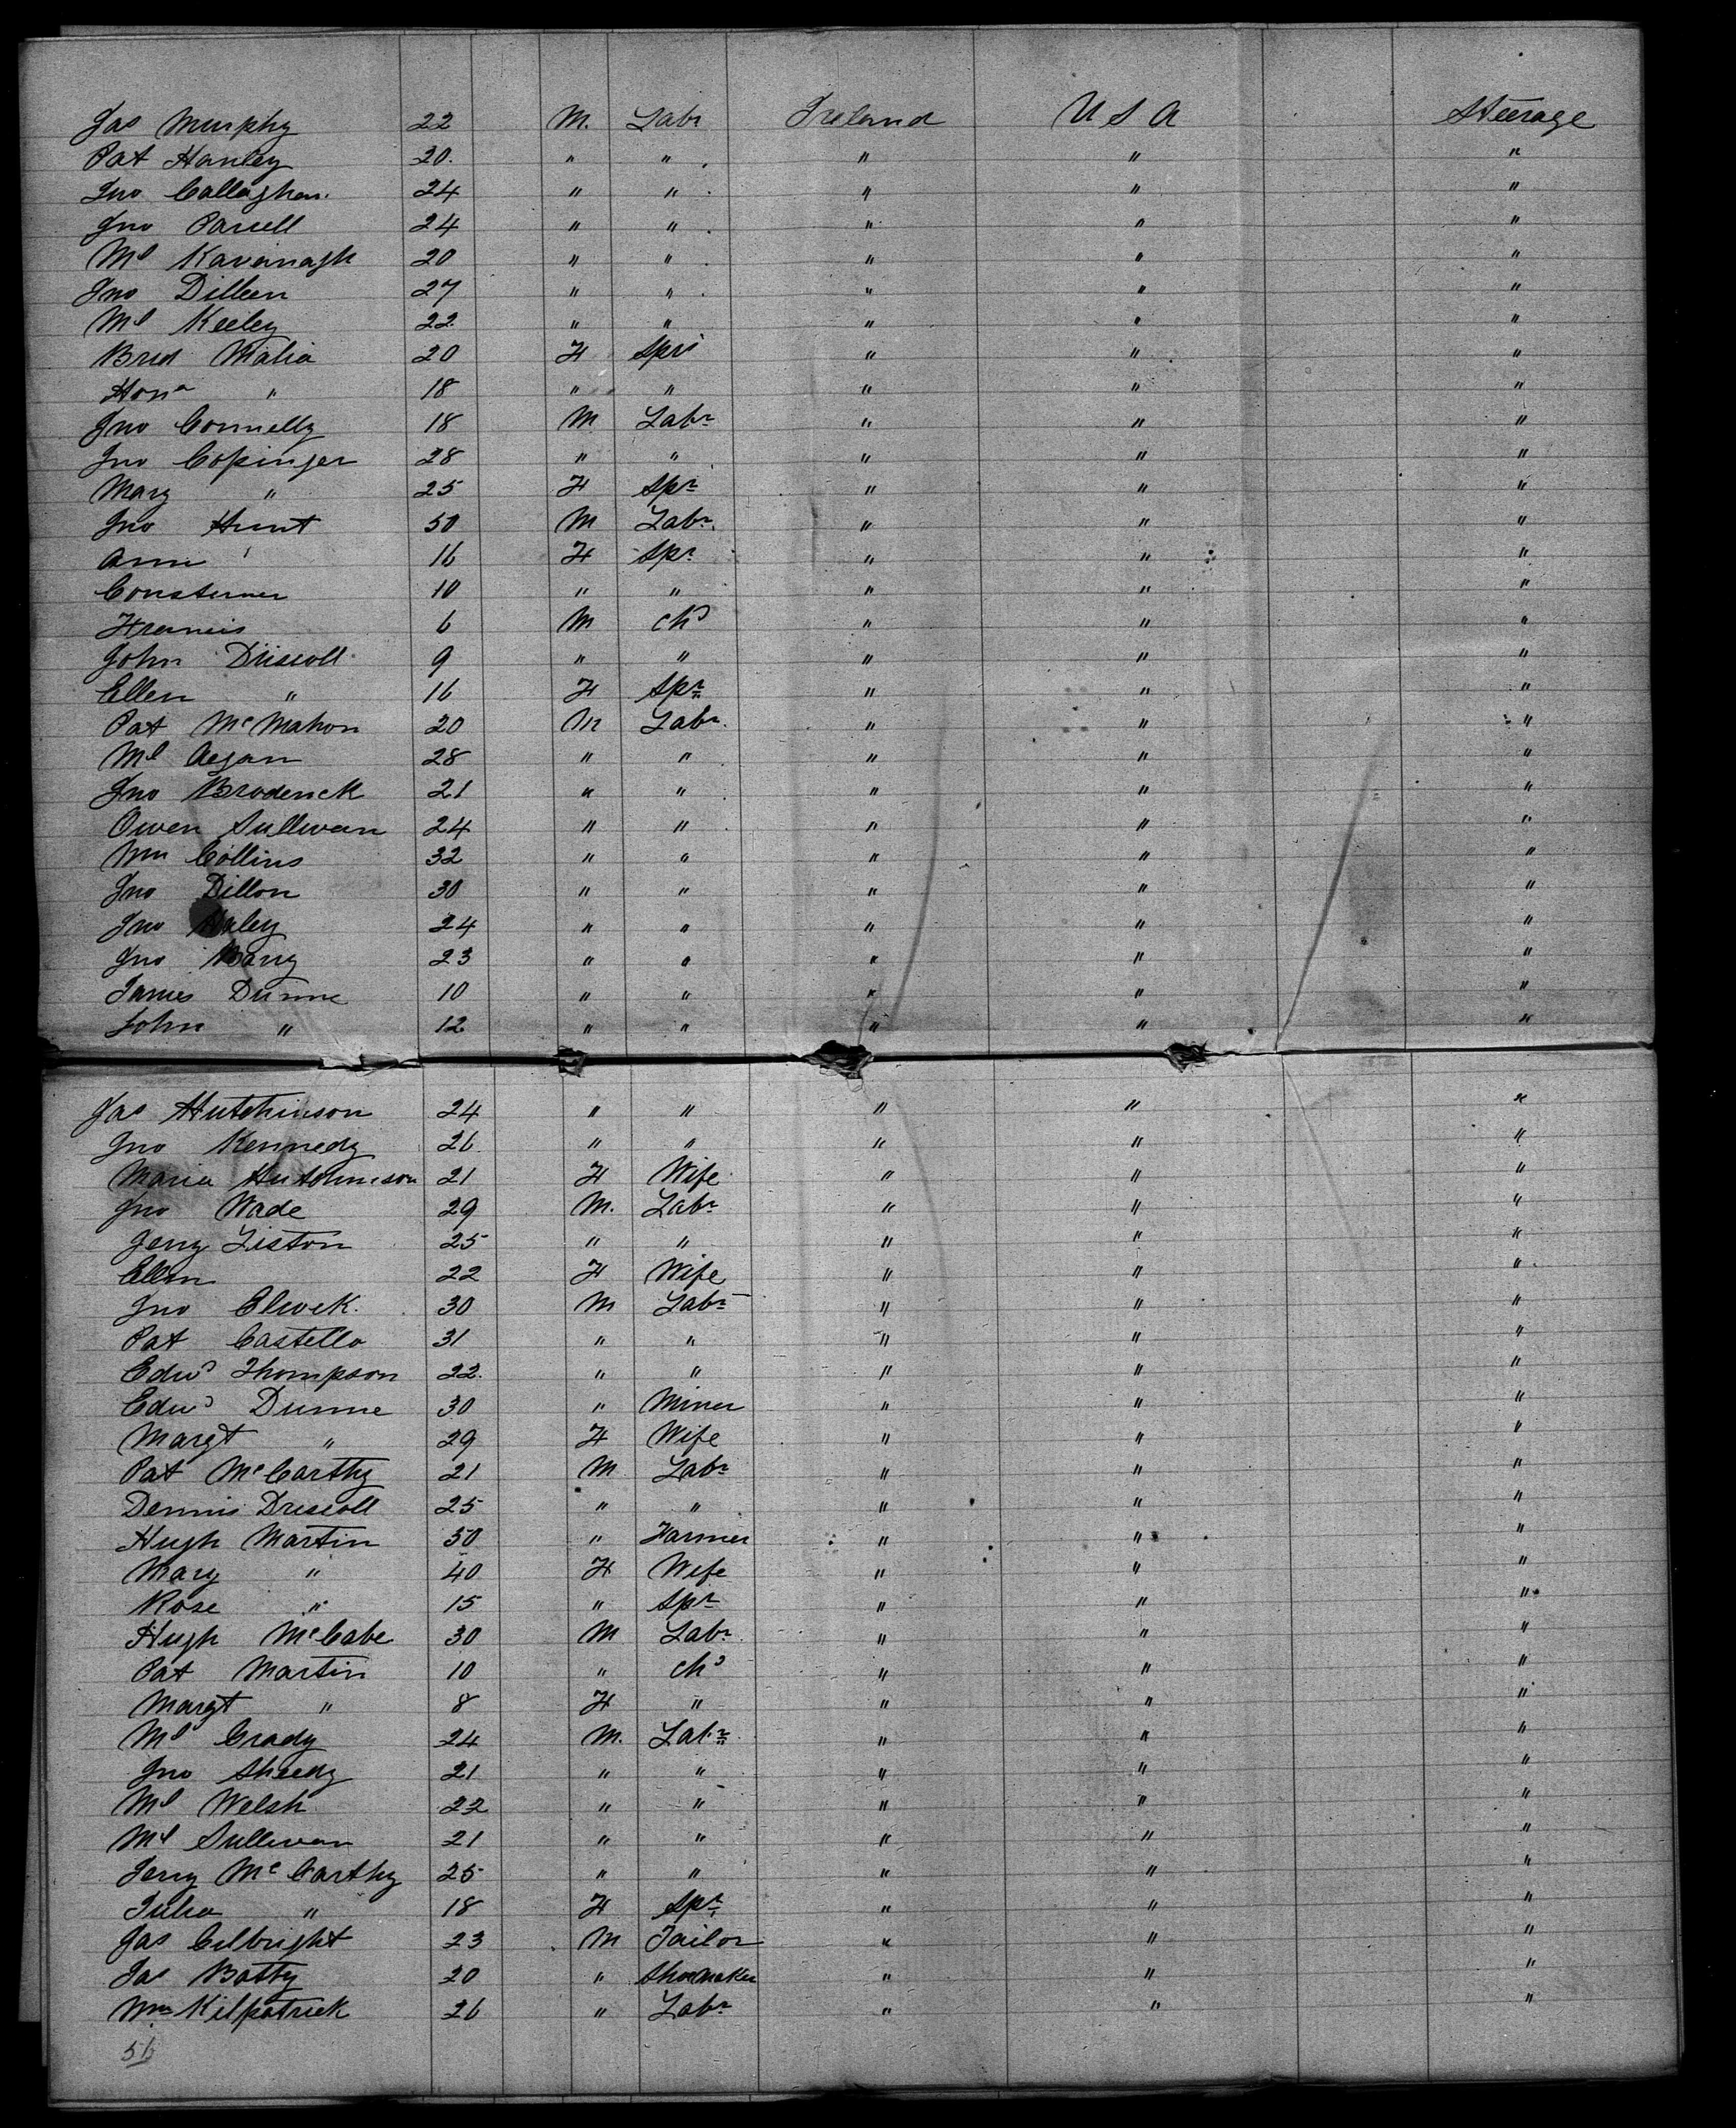 Jas Murphy 22 M. Labr Ireland U S A Steerage
Pat Hanley 20. " " " " "
Jno Callaghan. 24 " " " " "
Jno Parsell 24 " " " " "
Ml Kavanagh 20 " " " " "
Jno Dilleen 27 " " " " "
Ml Keeley 22 " " " " "
Brid Malia 20 F Spr " " "
Hona " 18 " " " " "
Jno Connelly 18 M Labr " " "
Jno Copinger 28 " " " " "
Mary " 25 F Spr " " "
Jno Hunt 50 M Labr. " " "
Ann 16 F Spr " " "
10 " " " " "
Francis 6 M chd " " "
John Driscoll 9 " " " " "
Ellen " 16 F Spr " " "
Pat McMahon 20 M Labr. " " "
Ml 28 " " " " "
Jno Broderick 21 " " " " "
Owen Sullivan 24 " " " " "
Wm Collins 32 " " " " "
Jno Dillon 30 " " " " "
Jno Haley 24 " " " " "
Jno Barry 23 " " " " "
James Dunne 10 " " " " "
John " 12 " " " " "
Jas Hutchinson 24 " " " " "
Jno Kennedy 26. " " " " "
Maria Hutchinson 21 F Wife " " "
Jno Wade 29 M. Labr " " "
Jerry Liston 25 " " " " "
Ellen 22 F Wife " " "
Jno 30 M Labr " " "
Pat Castello 31 " " " " "
Edwd Thompson 22. " " " " "
Edwd Dunne 30 " Miner " " "
Margt " 29 F Wife " " "
Pat McCarthy 21 M Labr " " "
Dennis Driscoll 25 " " " " "
Hugh Martin 50 " Farmer " " "
Mary " 40 F Wife " " "
Rose " 15 " Spr " " "
Hugh McCabe 30 M Labr. " " "
Pat Martin 10 " chd " " "
Margt " 8 F " " " "
Ml Grady 24 M. Labr " " "
Jno Sheedy 21 " " " " "
Ml Welsh 22 " " " " "
Ml Sullivan 21 " " " " "
Jerry McCarthy 25 " " " " "
Julia " 18 F Spr " " "
Jas Culbright 23 M Tailor " " "
Jas Batty 20 " Shoemaker " " "
Wm Kilpatrick 26 " Labr " " "
56